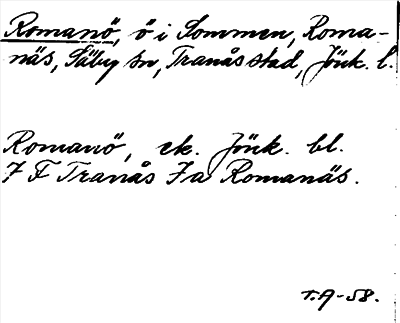 Romanö, ö i Sommen, Roma-
näs, Säby sn, Tranås stad, Jönk. l.
Romanö, ek. Jönk. bl.
7 F Tranås 7a Romanäs.
T.A-58.